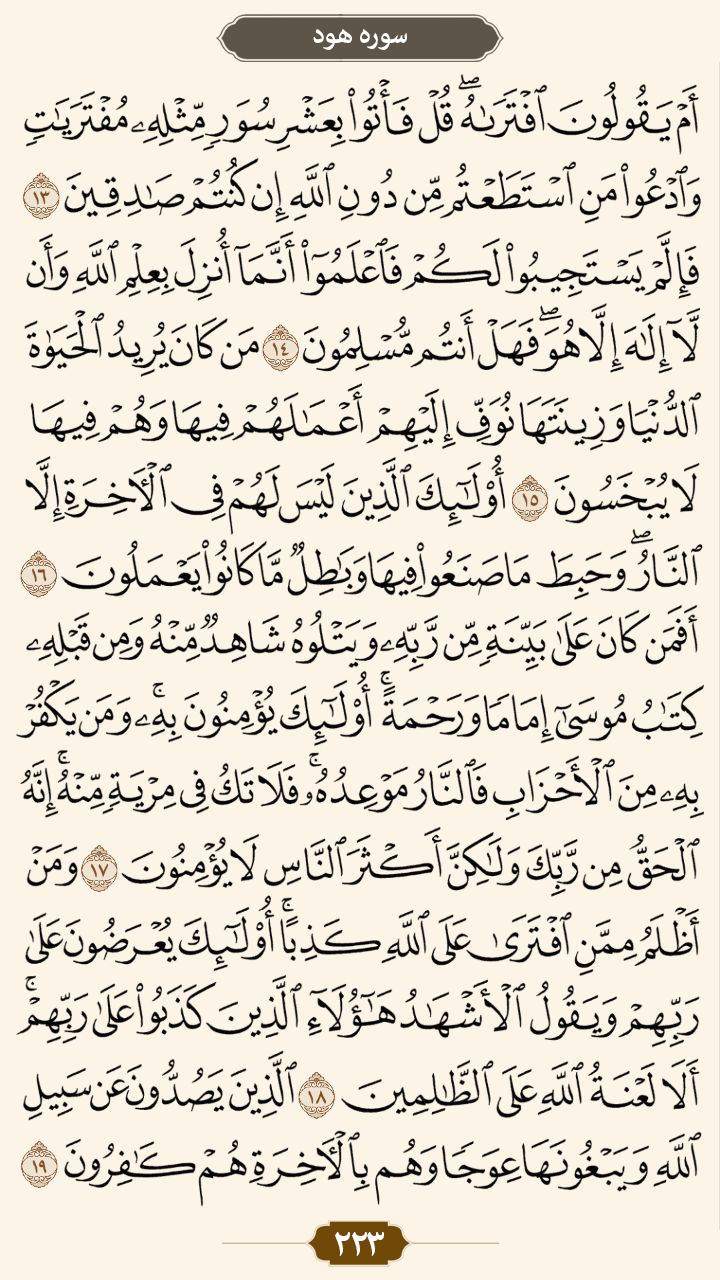 سوره هود
أَمْ يَقُولُونَ ٱفْتَرَىٰهُۖ قُلْ فَأْتُوا۟ بِعَشْرِ سُوَرٍ مِّثْلِهِۦ مُفْتَرَيَٰتٍ
وَٱدْعُوا۟ مَنِ ٱسْتَطَعْتُم مِّن دُونِ ٱللَّهِ إِن كُنتُمْ صَٰدِقِينَ ١٣
فَإِلَّمْ يَسْتَجِيبُوا۟ لَكُمْ فَٱعْلَمُوٓا۟ أَنَّمَآ أُنزِلَ بِعِلْمِ ٱللَّهِ وَأَن
لَّآ إِلَٰهَ إِلَّا هُوَۖ فَهَلْ أَنتُم مُّسْلِمُونَ ١٤ مَن كَانَ يُرِيدُ ٱلْحَيَوٰةَ
ٱلدُّنْيَا وَزِينَتَهَا نُوَفِّ إِلَيْهِمْ أَعْمَٰلَهُمْ فِيهَا وَهُمْ فِيهَا
لَا يُبْخَسُونَ ١٥ أُو۟لَٰٓئِكَ ٱلَّذِينَ لَيْسَ لَهُمْ فِى ٱلْءَاخِرَةِ إِلَّا
ٱلنَّارُۖ وَحَبِطَ مَا صَنَعُوا۟ فِيهَا وَبَٰطِلٌ مَّا كَانُوا۟ يَعْمَلُونَ ١٦
أَفَمَن كَانَ عَلَىٰ بَيِّنَةٍ مِّن رَّبِّهِۦ وَيَتْلُوهُ شَاهِدٌ مِّنْهُ وَمِن قَبْلِهِۦ
كِتَٰبُ مُوسَىٰٓ إِمَامًا وَرَحْمَةًۚ أُو۟لَٰٓئِكَ يُؤْمِنُونَ بِهِۦۚ وَمَن يَكْفُرْ
بِهِۦ مِنَ ٱلْأَحْزَابِ فَٱلنَّارُ مَوْعِدُهُۥۚ فَلَا تَكُ فِى مِرْيَةٍ مِّنْهُۚ إِنَّهُ
ٱلْحَقُّ مِن رَّبِّكَ وَلَٰكِنَّ أَكْثَرَ ٱلنَّاسِ لَا يُؤْمِنُونَ ١٧ وَمَنْ
أَظْلَمُ مِمَّنِ ٱفْتَرَىٰ عَلَى ٱللَّهِ كَذِبًاۚ أُو۟لَٰٓئِكَ يُعْرَضُونَ عَلَىٰ
رَبِّهِمْ وَيَقُولُ ٱلْأَشْهَٰدُ هَٰٓؤُلَآءِ ٱلَّذِينَ كَذَبُوا۟ عَلَىٰ رَبِّهِمْۚ
أَلَا لَعْنَةُ ٱللَّهِ عَلَى ٱلظَّٰلِمِينَ ١٨ ٱلَّذِينَ يَصُدُّونَ عَن سَبِيلِ
ٱللَّهِ وَيَبْغُونَهَا عِوَجًا وَهُم بِٱلْءَاخِرَةِ هُمْ كَٰفِرُونَ ١٩
٢٢٣